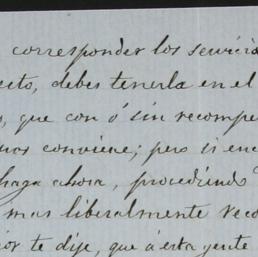 corresponder los servicio
esto, debes tenerla en el
que con ó sin recompe
conviene; pero si en
haga ahora, procediendo
mas liberalmente reco
te dije, que á esta gente